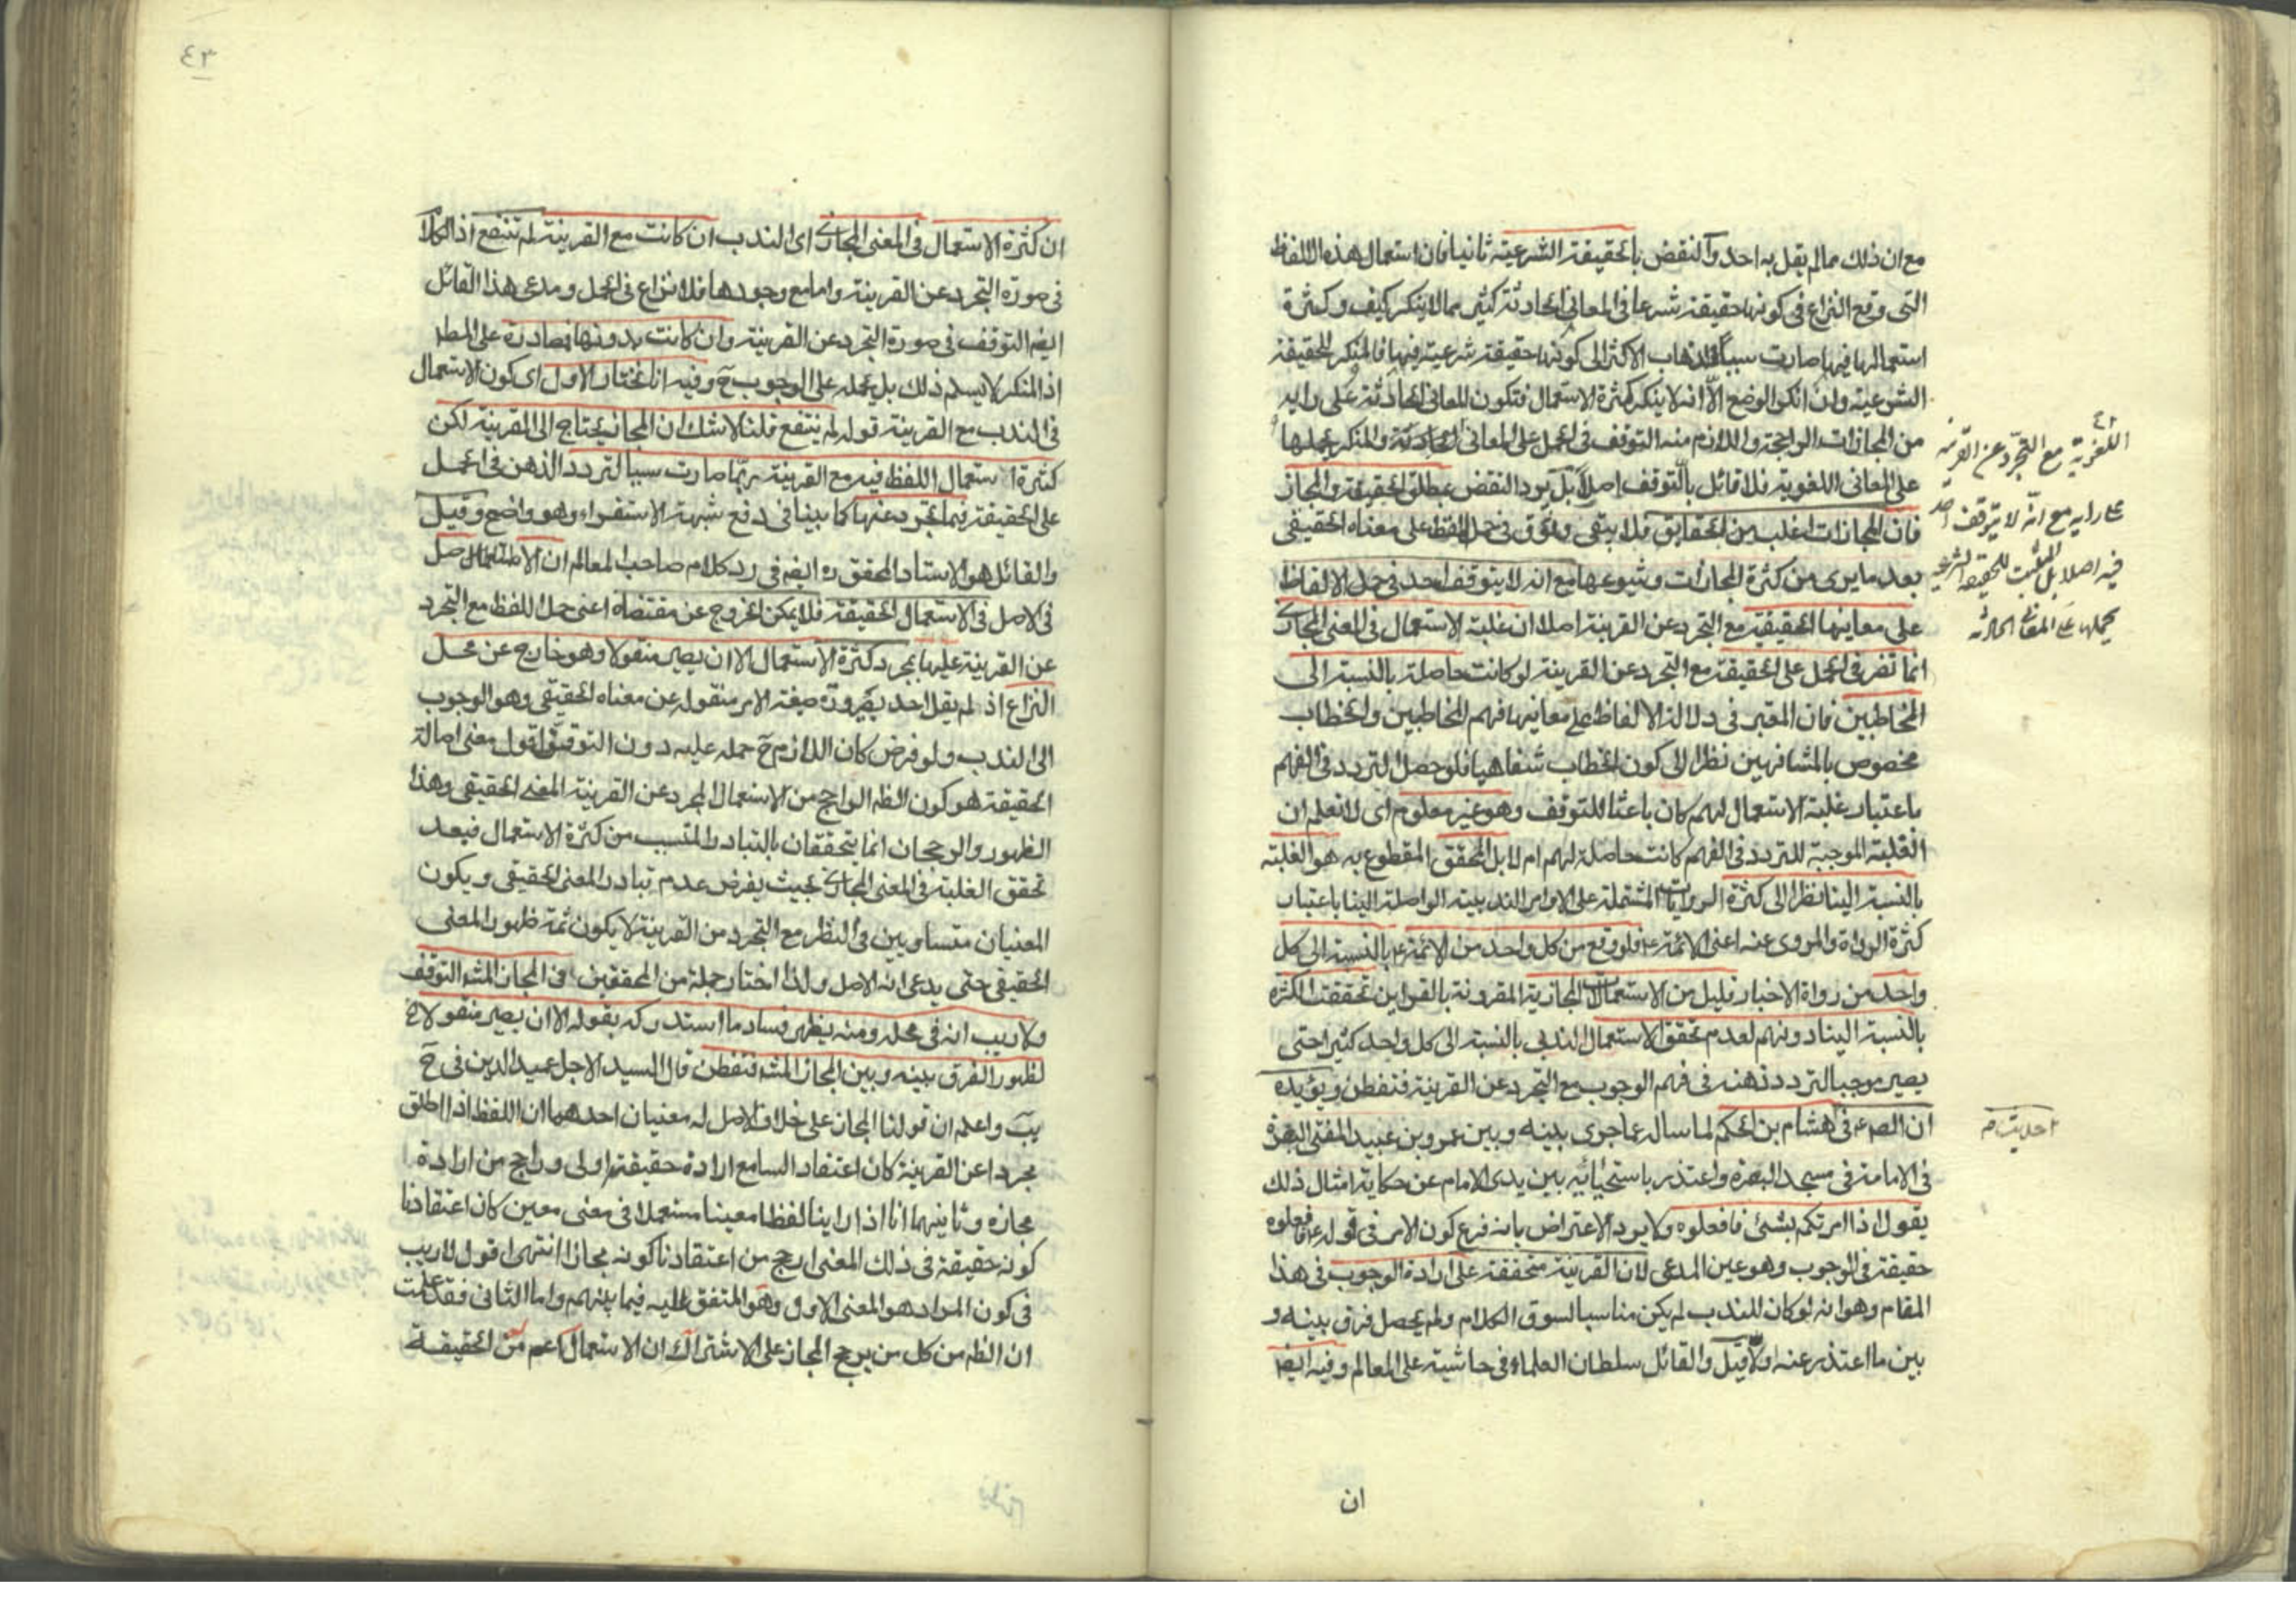 مع ان ذلك مما لم يقل به احد والنقض بالحقيقة الشرعية ثانيا فان استعمال هذه الالفاظ
التى وقع النزاع فى كونها حقيقة شرعا فى المعانى الحادثة كثير مما لا ينكر كيف وكثرة
استعمالها فيها صارت سببا لذهاب الاكثر الى كونها حقيقة شرعية فيها فالمنكر للحقيقة
الشرعية وان انكر الوضع الا انه لا ينكر كثرة الاستعمال فتكون المعانى الحادثة على رايه
من المجازات الراجحة واللازم منه التوقف فى الحمل على المعانى الحادثة والمنكر يحملها
على المعانى اللغوية فلا قائل بالتوقف اصلا بل يرد النقض بمطلق الحقيقة والمجاز
فان المجازات اغلب من الحقايق فلا يبقى وثوق فى حمل اللفظ على معناه الحقيقى
بعد ما يرى من كثرة المجازات وشيوعها مع انه لا يتوقف احد فى حمل الالفاظ
على معاينها الحقيقية مع التجرد عن القرينة اصلا ان غلبة الاستعمال فى المعنى المجازى
انما تضر فى الحمل على الحقيقة مع التجرد عن القرينة لو كانت حاصلة بالنسبة الى
المخاطبين فان المعتبر فى دلالة الالفاظ على معانيها فهم المخاطبين والخطاب
مخصوص بالمشافهين نظرا الى كون الخطاب شفاهيا فلو حصل التردد فى الفهم
باعتبار غلبة الاستعمال لهم كان باعثا للتوقف وهو غير معلوم اى لا نعلم ان
الغلبة الموجبة للتردد فى الفهم كانت حاصلة لهم ام لا بل المحقق المقطوع به هو الغلبة
بالنسبة الينا نظرا الى كثرة الروايات المشتملة على الاوامر الندبية الواصلة الينا باعتبار
كثرة الرواة والمروى عنه اعنى الائمة ع فلو وقع من كل واحد من الائمة ع بالنسبة الى كل
واحد من رواة الاخبار قليل من الاستعمالات المجازية المقرونة بالقراين تحققت الكثرة
بالنسبة الينا دونهم لعدم تحقق الاستعمال الندبى بالنسبة الى كل واحد كثيرا حتى
يصير موجبا لتردد ذهنه فى فهم الوجوب مع التجرد عن القرينة فتفطن ويؤيده
ان الص ع فى هشام بن الحكم لما ساله عما جرى بينه وبين عمرو بن عبيد المفتى البصرة
فى الامامة فى مسجد البصرة واعتذر باستحيائه بين يدى الامام عن حكاية امثال ذلك
يقول اذا امرتكم بشئ فافعلوه ولا يرد الاعتراض بانه فرع كون الامر فى قوله ع فافعلوه
حقيقة فى الوجوب وهو عين المدعى لان القرينة متحققة على ارادة الوجوب فى هذا
المقام وهو انه لو كان للندب لم يكن مناسبا لسوق الكلام ولم يحصل فرق بينه و
بين ما اعتذر عنه اولا قيل والقائل سلطان العلماء فى حاشية على المعالم وفيه ايضا
اللغوية مع التجرد عن القرينة
على رايه مع انه لا يتوقف احد
فيه اصلا بل المثبت للحقيقة الشرعية
يحملها على المعانى الحادثة
احديث م
ان
٤٣
ان كثرة الاستعمال فى المعنى المجازى اى الندب ان كانت مع القرينة لم تنفع اذ الكلام
فى صورة التجرد عن القرينة واما مع وجودها فلا نزاع فى الحمل ومدعى هذا القائل
ايضا التوقف فى صورة التجرد عن القرينة وان كانت بدونها فصادرة على المط
اذ المنكر لا يسلم ذلك بل يحمله على الوجوب ح وفيه انا نختار الاول اى كون الاستعمال
فى الندب مع القرينة قوله لم ينتفع قلنا لا شك ان المجاز يحتاج الى القرينة لكن
كثرة استعمال اللفظ فيه مع القرينة ربما صارت سببا لتردد الذهن فى الحمل
على الحقيقة فيما تجرد عنها كما بينا فى دفع شبهة الاستقراء وهو واضح وقيل
والقائل هو الاستاد المحقق ره ايضا فى رد كلام صاحب المعالم ان الاستعمال
فى الاصل فى الاستعمال الحقيقة فلا يمكن الخروج عن مقتضاه اعنى حمل اللفظ مع التجرد
عن القرينة عليها بمجرد كثرة الاستعمال الا ان يصير منقولا وهو خارج عن محل
النزاع اذ لم يقل احد بصيرورة صيغة الامر منقوله عن معناه الحقيقى وهو الوجوب
الى الندب ولو فرض كان اللازم ح حمله عليه دون التوقف اقول معنى اصالة
الحقيقة هو كون الظ الراجح من الاستعمال المجرد عن القرينة المعنى الحقيقى وهذا
الظهور والرجحان انما يتحققان بالتبادر المتسبب من كثرة الاستعمال فبعد
تحقق الغلبة فى المعنى المجازى بحيث يفرض عدم تبادر المعنى الحقيقى ويكون
المعنيان متساويين فى النظر مع التجرد من القرينة لا يكون ثمة ظهور المعنى
الحقيقى حتى يدعى انه الاصل ولذا اختار جملة من المحققين فى المجاز المشه التوقف
ولا ريب انه فى محله ومنه يظهر فساد ما استدركه بقوله الا ان يصير منقولا الخ
لظهور الفرق بينه وبين المجاز المشه فتفطن قال السيد الاجل عميد الدين فى ح
يب واعلم ان قولنا المجاز على خلاف الاصل له معنيان احدهما ان اللفظ اذا اطلق
مجردا عن القرينة كان اعتقاد السامع ارادة حقيقته اولى وراجح من ارادة
مجازه وثانيهما انا اذا راينا لفظا معينا مستعملا فى معنى معين كان اعتقادنا
كونه حقيقة فى ذلك المعنى ارجح من اعتقادنا كونه مجازا انتهى اقول لا ريب
فى كون المراد هو المعنى الاول وهو المتفق عليه فيما بينهم واما الثانى فقد علمت
ان الظ من كل من يرجح المجاز على الاشتراك ان الاستعمال اعم من الحقيقة